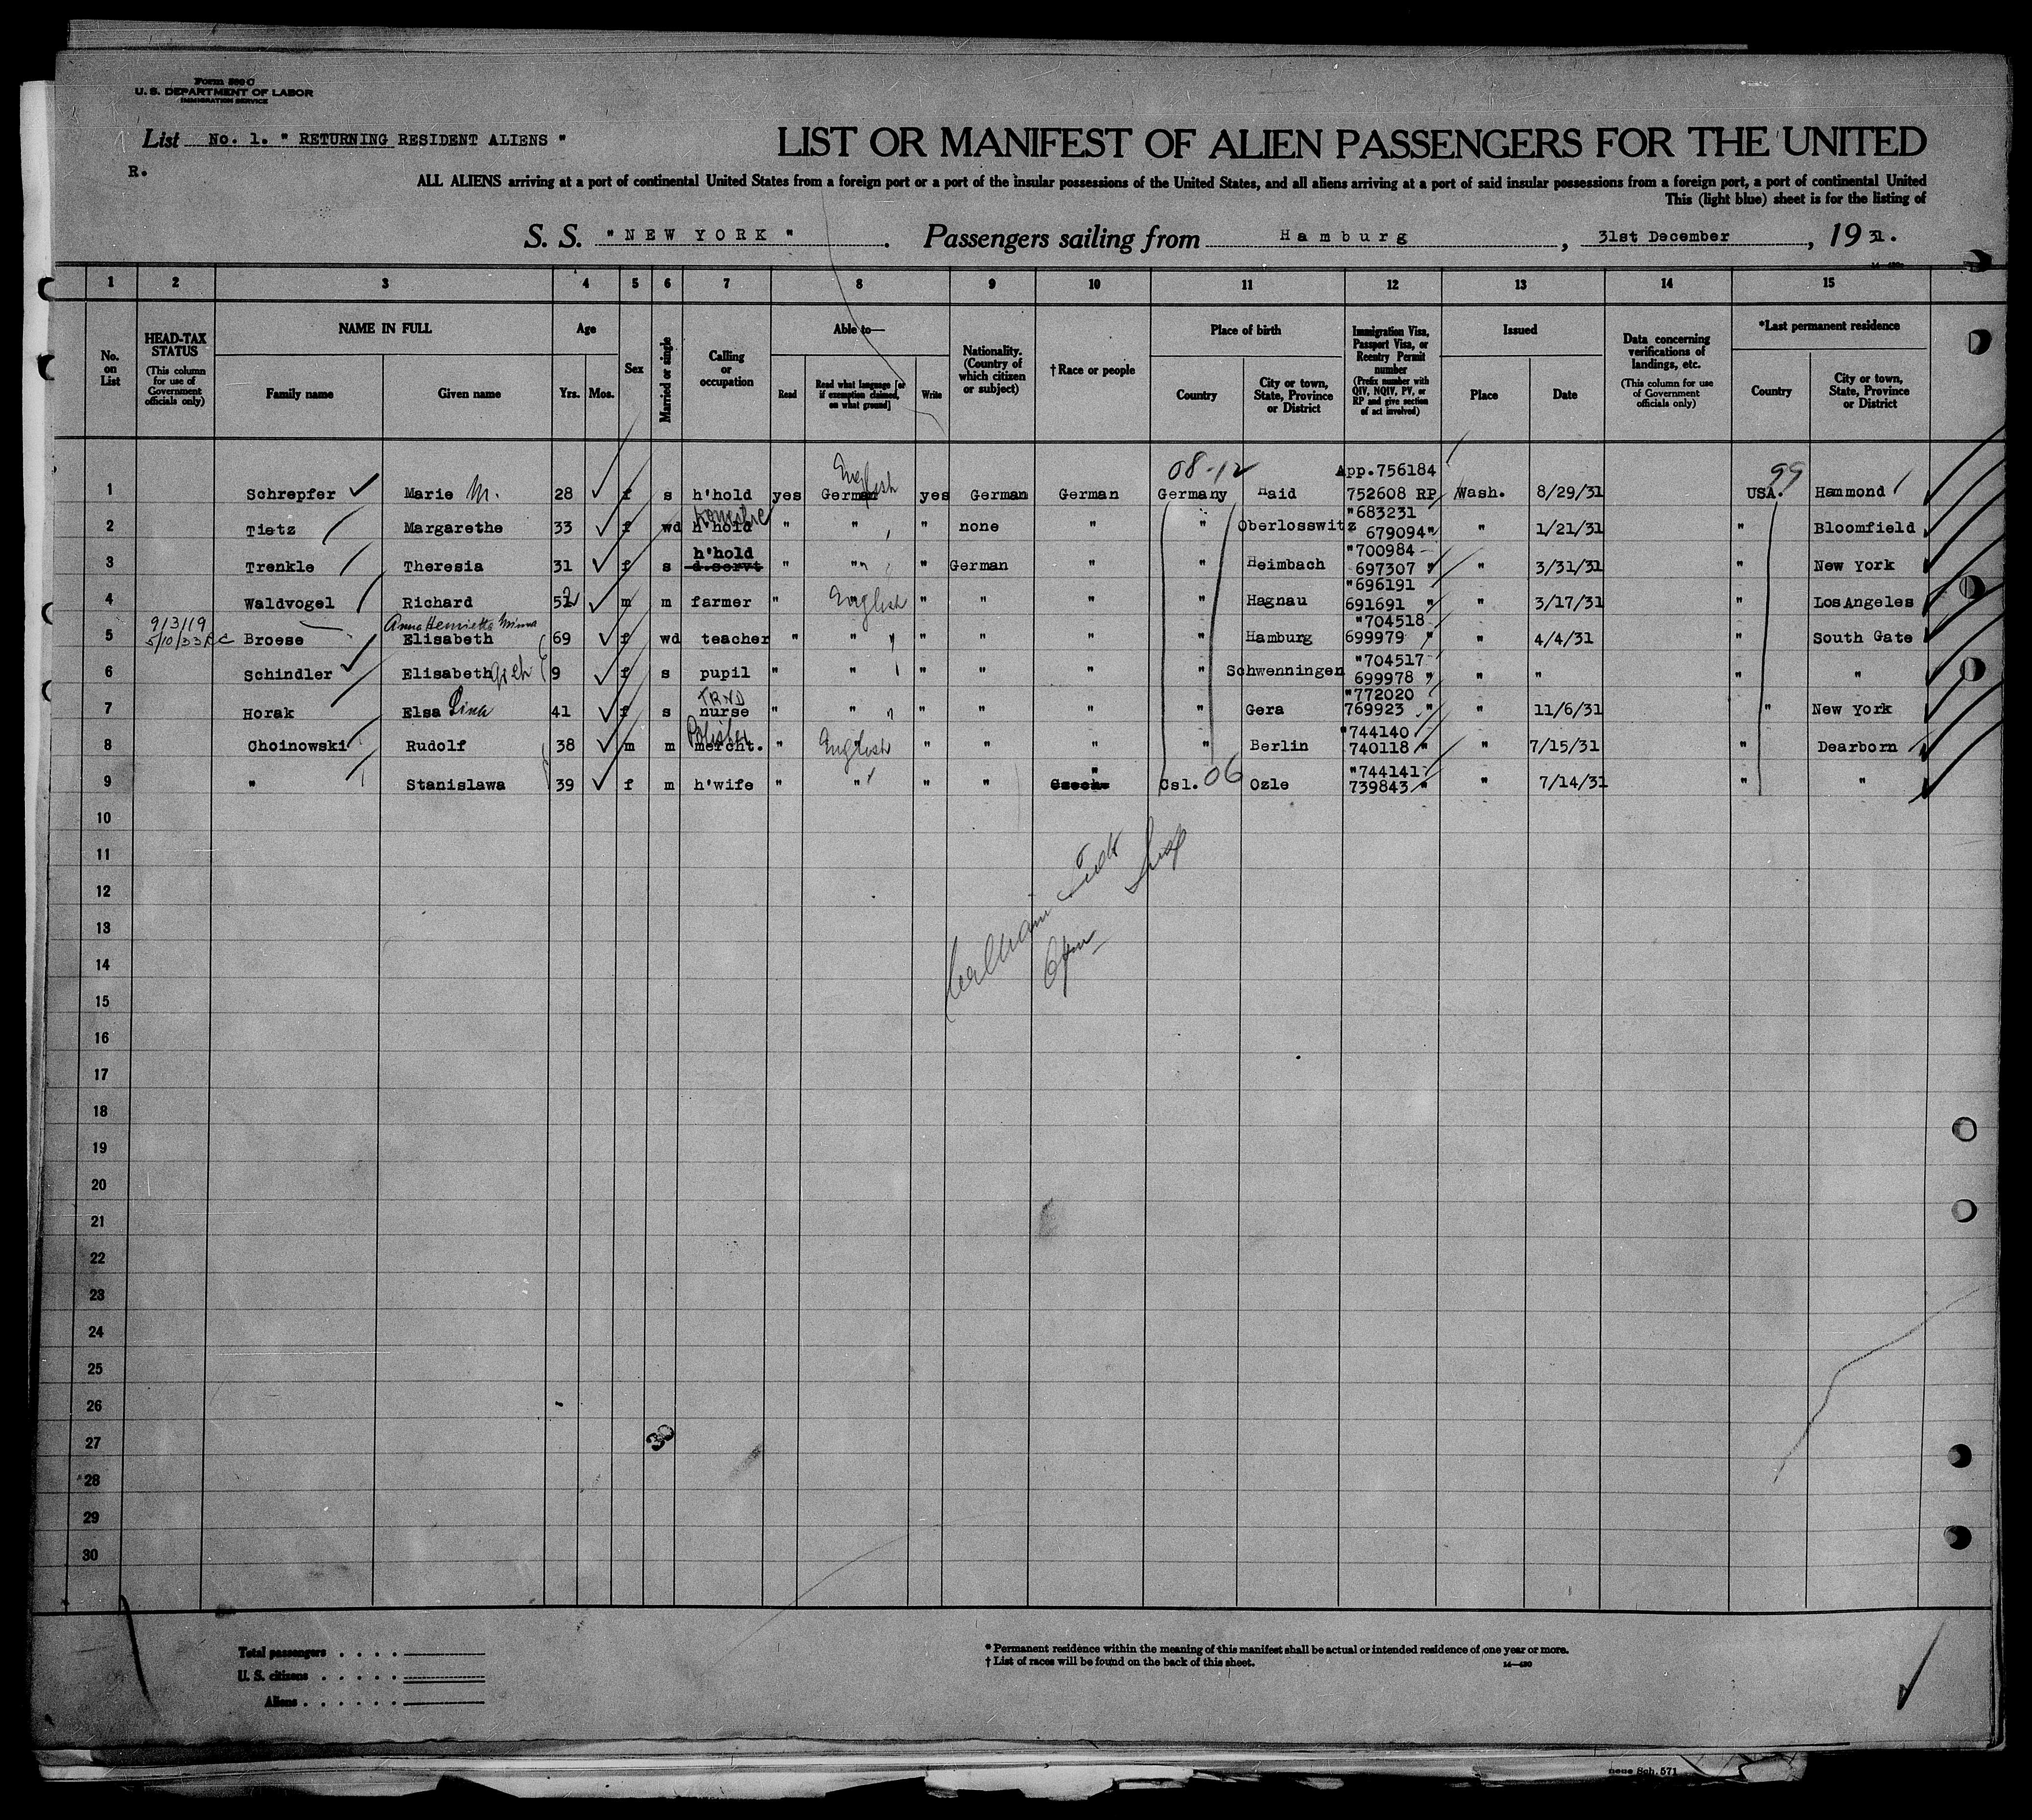 Form 500 C
U. S. DEPARTMENT OF LABOR
IMMIGRATION SERVICE
List No. 1. " RETURNING RESIDENT ALIENS "
R.
LIST OR MANIFEST OF ALIEN PASSENGERS FOR THE UNITED
ALL ALIENS arriving at a port of continental United States from a foreign port or a port of the insular possessions of the United States, and all aliens arriving at a port of said insular possessions from a foreign port, a port of continental United
This (light blue) sheet is for the listing of
S. S. " NEW YORK ". Passengers sailing from Hamburg, 31st December, 1931.
1 2 3 4 5 6 7 8 9 10 11 12 13 14 15
No. on List
HEAD-TAX STATUS (This column for use of Government officials only)
NAME IN FULL
Family name
Given name
Age
Yrs. Mos.
Sex
Married or single
Calling or occupation
Able to—
Read
Read what language [or if exemption claimed, on what ground]
Write
Nationality. (Country of which citizen or subject)
†Race or people
Place of birth
Country
City or town, State, Province or District
Immigration Visa, Passport Visa, or Reentry Permit number (Prefix number with QIV, NQIV, PV, or RP and give section of act involved)
Issued
Place
Date
Data concerning verifications of landings, etc. (This column for use of Government officials only)
*Last permanent residence
Country
City or town, State, Province or District
English 08-12 App.756184 99
1 Schrepfer Marie M. 28 f s h'hold yes German yes German German Germany Haid 752608 RP Wash. 8/29/31 USA. Hammond
"683231
2 Tietz Margarethe 33 f wd h'hold " " " none " " Oberlosswitz 679094 " " 1/21/31 " Bloomfield
h'hold "700984
3 Trenkle Theresia 31 f s d.servt " " " German " " Heimbach 697307 " " 3/31/31 " New York
"696191
4 Waldvogel Richard 52 m m farmer " English " " " " Hagnau 691691 " " 3/17/31 " LosAngeles
913119 Anna Henriette Minna "704518
5/10/33 5 Broese Elisabeth 69 f wd teacher " " " " " " Hamburg 699979 " " 4/4/31 " South Gate
"704517
6 Schindler Elisabeth 9 f s pupil " " " " " " Schwenningen 699978 " " " " "
TRND "772020
7 Horak Elsa Lina 41 f s nurse " " " " " " Gera 769923 " " 11/6/31 " New York
Polisher "744140
8 Choinowski Rudolf 38 m m mercht. " English " " " " Berlin 740118 " " 7/15/31 " Dearborn
" "744141
9 " Stanislawa 39 f m h'wife " " " " Czech. Csl. 06 Ozle 739843 " " 7/14/31 " "
10
11
12
13
14
15
16
17
18
19
20
21
22
23
24
25
26
27
30
28
29
30
Total passengers . . . .
U. S. citizens . . . . .
Aliens . . . . . .
* Permanent residence within the meaning of this manifest shall be actual or intended residence of one year or more.
† List of races will be found on the back of this sheet.
14—430
neue Sch. 571